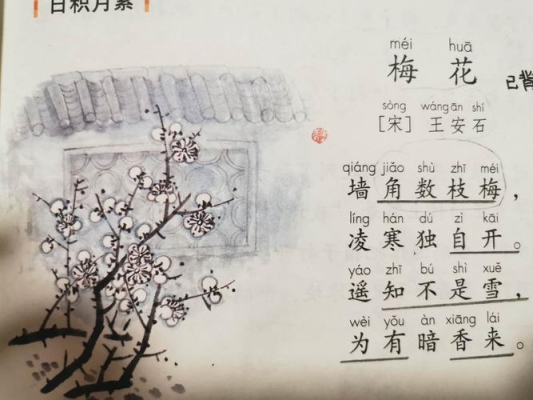 日积月累
méi huā
梅 花
已背
sòng wáng ān shí
[宋] 王安石
qiáng jiǎo shù zhī méi
墙角数枝梅，
líng hán dú zì kāi
凌寒独自开。
yáo zhī bú shì xuě
遥知不是雪，
wèi yǒu àn xiāng lái
为有暗香来。